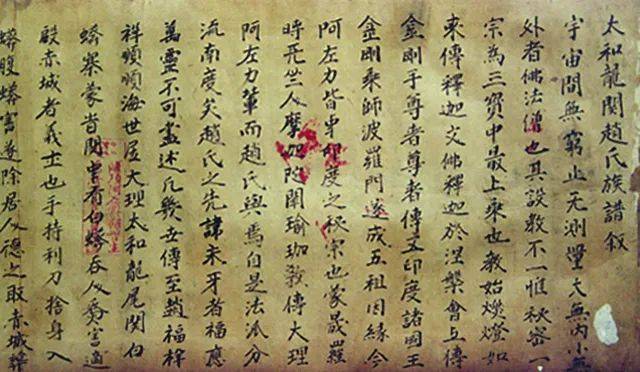 太和龍関趙氏族譜叙
宇宙間無窮止无測量大無内小無
外者佛法僧也其設教不一惟秘密一
宗為三寳中最上乘也教始燃燈如
來傳釋迦文佛釋迦於涅槃會上傳
金剛手尊者尊者傳五印度諸國王
金剛乘師波羅門遂成五祖因緣今
阿左力皆中印度之秘宗也蒙晟羅
時天竺人摩伽陁闡瑜珈教傳大理
阿左力軰而趙氏與焉自是法派分
流南度矣趙氏之先諱未牙者福應
萬靈不可盡述凡幾世傳至趙福祥
祥順順海世居大理太和龍尾関白
蟒寨蒙昔関中有白蟒吞人為害適
段赤城者義士也手持利刀捨身入
蟒腹蟒害遂除居人德之取赤城